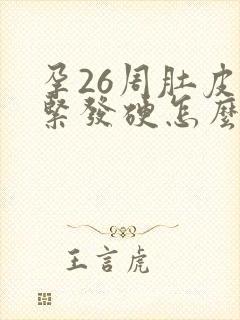 孕26周肚皮
緊發硬怎麼
王言虎